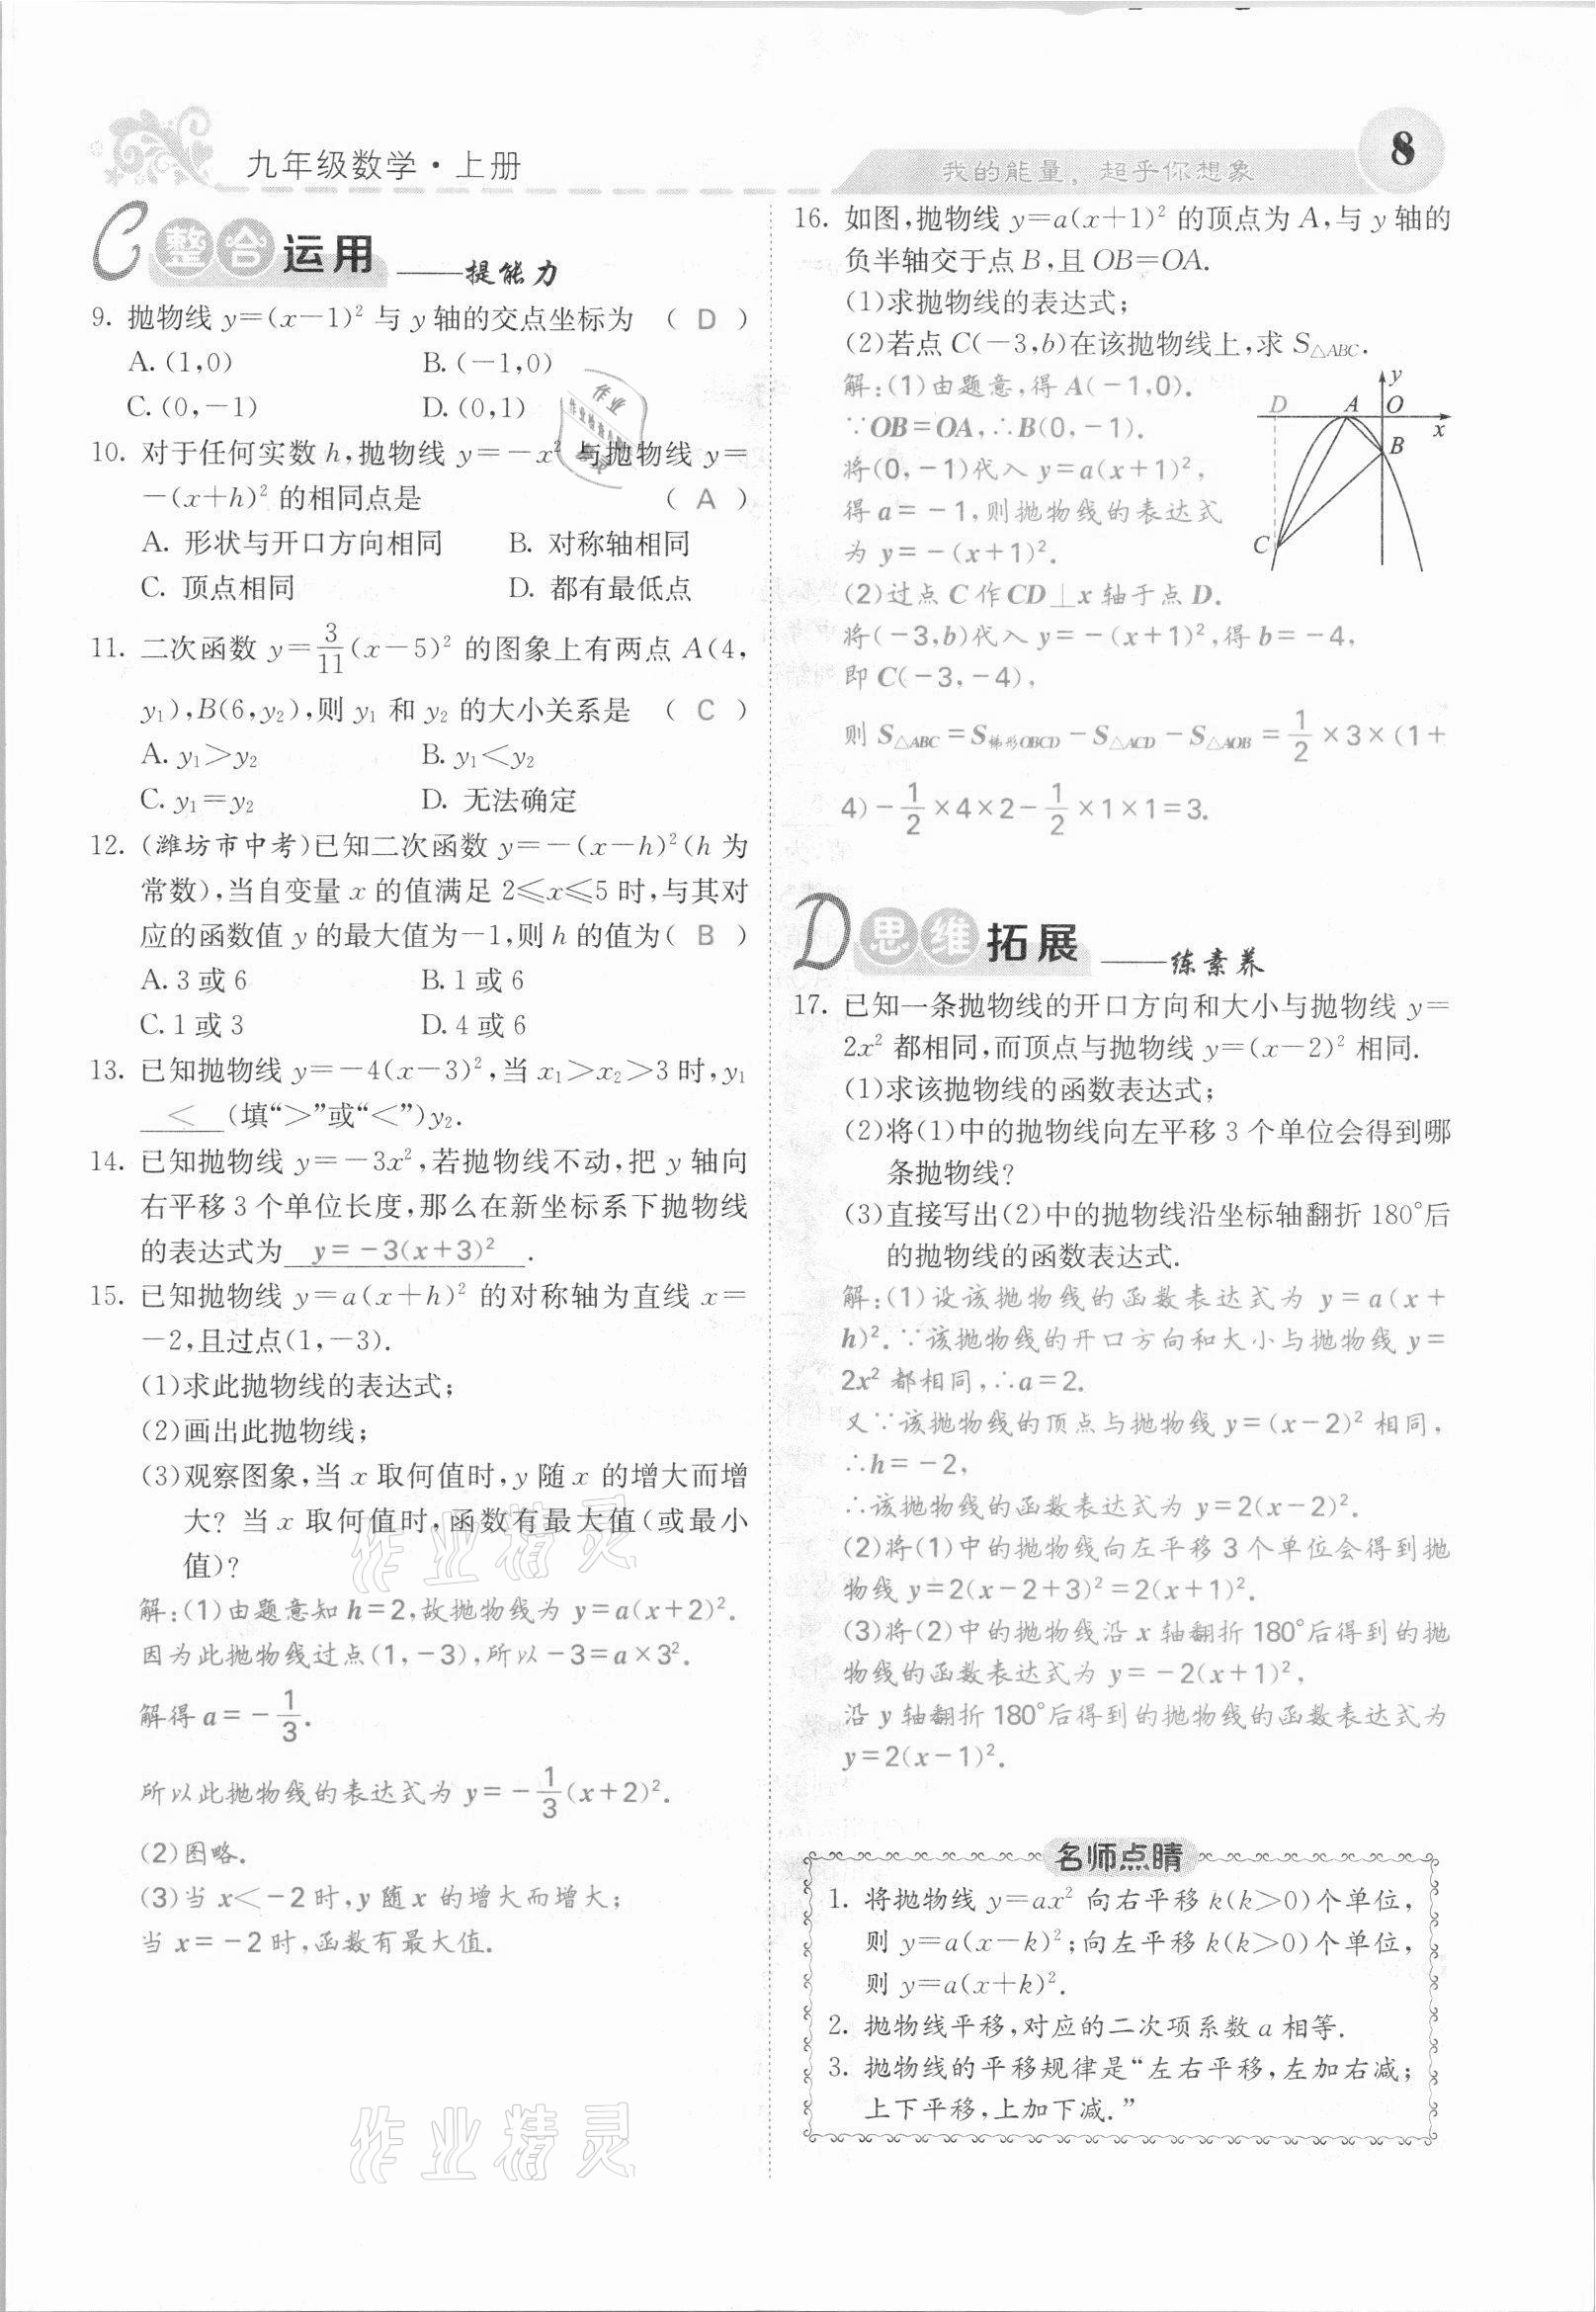 九年级数学·上册
我的能量，超乎你想象
8
C 整合运用 ——提能力
9. 抛物线 y=(x-1)² 与 y 轴的交点坐标为 ( D )
A. (1,0) B. (-1,0)
C. (0,-1) D. (0,1)
10. 对于任何实数 h,抛物线 y=-x² 与抛物线 y=
-(x+h)² 的相同点是 ( A )
A. 形状与开口方向相同 B. 对称轴相同
C. 顶点相同 D. 都有最低点
11. 二次函数 y=3/11(x-5)² 的图象上有两点 A(4,
y₁),B(6,y₂),则 y₁ 和 y₂ 的大小关系是 ( C )
A. y₁>y₂ B. y₁<y₂
C. y₁=y₂ D. 无法确定
12. (潍坊市中考)已知二次函数 y=-(x-h)²(h 为
常数),当自变量 x 的值满足 2≤x≤5 时,与其对
应的函数值 y 的最大值为-1,则 h 的值为( B )
A. 3 或 6 B. 1 或 6
C. 1 或 3 D. 4 或 6
13. 已知抛物线 y=-4(x-3)²,当 x₁>x₂>3 时,y₁
< (填“>”或“<”)y₂.
14. 已知抛物线 y=-3x²,若抛物线不动,把 y 轴向
右平移 3 个单位长度,那么在新坐标系下抛物线
的表达式为 y=-3(x+3)² .
15. 已知抛物线 y=a(x+h)² 的对称轴为直线 x=
-2,且过点(1,-3).
(1)求此抛物线的表达式;
(2)画出此抛物线;
(3)观察图象,当 x 取何值时,y 随 x 的增大而增
大? 当 x 取何值时,函数有最大值(或最小
值)?
解:(1)由题意知 h=2,故抛物线为 y=a(x+2)².
因为此抛物线过点(1,-3),所以-3=a×3².
解得 a=-1/3.
所以此抛物线的表达式为 y=-1/3(x+2)².
(2)图略.
(3)当 x<-2 时,y 随 x 的增大而增大;
当 x=-2 时,函数有最大值.
作业精灵
作业精灵
16. 如图,抛物线 y=a(x+1)² 的顶点为 A,与 y 轴的
负半轴交于点 B,且 OB=OA.
(1)求抛物线的表达式;
(2)若点 C(-3,b)在该抛物线上,求 S△ABC.
解:(1)由题意,得 A(-1,0).
∵OB=OA,∴B(0,-1).
将(0,-1)代入 y=a(x+1)²,
得 a=-1,则抛物线的表达式
为 y=-(x+1)².
y
D A O
x
B
C
(2)过点 C 作 CD⊥x 轴于点 D.
将(-3,b)代入 y=-(x+1)²,得 b=-4,
即 C(-3,-4),
则 S△ABC=S梯形OBCD-S△ACD-S△AOB=1/2×3×(1+
4)-1/2×4×2-1/2×1×1=3.
D 思维拓展 ——练素养
17. 已知一条抛物线的开口方向和大小与抛物线 y=
2x² 都相同,而顶点与抛物线 y=(x-2)² 相同.
(1)求该抛物线的函数表达式;
(2)将(1)中的抛物线向左平移 3 个单位会得到哪
条抛物线?
(3)直接写出(2)中的抛物线沿坐标轴翻折 180°后
的抛物线的函数表达式.
解:(1)设该抛物线的函数表达式为 y=a(x+
h)².∵该抛物线的开口方向和大小与抛物线 y=
2x² 都相同,∴a=2.
又∵该抛物线的顶点与抛物线 y=(x-2)² 相同,
∴h=-2,
∴该抛物线的函数表达式为 y=2(x-2)².
(2)将(1)中的抛物线向左平移 3 个单位会得到抛
物线 y=2(x-2+3)²=2(x+1)².
(3)将(2)中的抛物线沿 x 轴翻折 180°后得到的抛
物线的函数表达式为 y=-2(x+1)²,
沿 y 轴翻折 180°后得到的抛物线的函数表达式为
y=2(x-1)².
名师点睛
1. 将抛物线 y=ax² 向右平移 k(k>0)个单位,
则 y=a(x-k)²;向左平移 k(k>0)个单位,
则 y=a(x+k)².
2. 抛物线平移,对应的二次项系数 a 相等.
3. 抛物线的平移规律是“左右平移,左加右减;
上下平移,上加下减.”